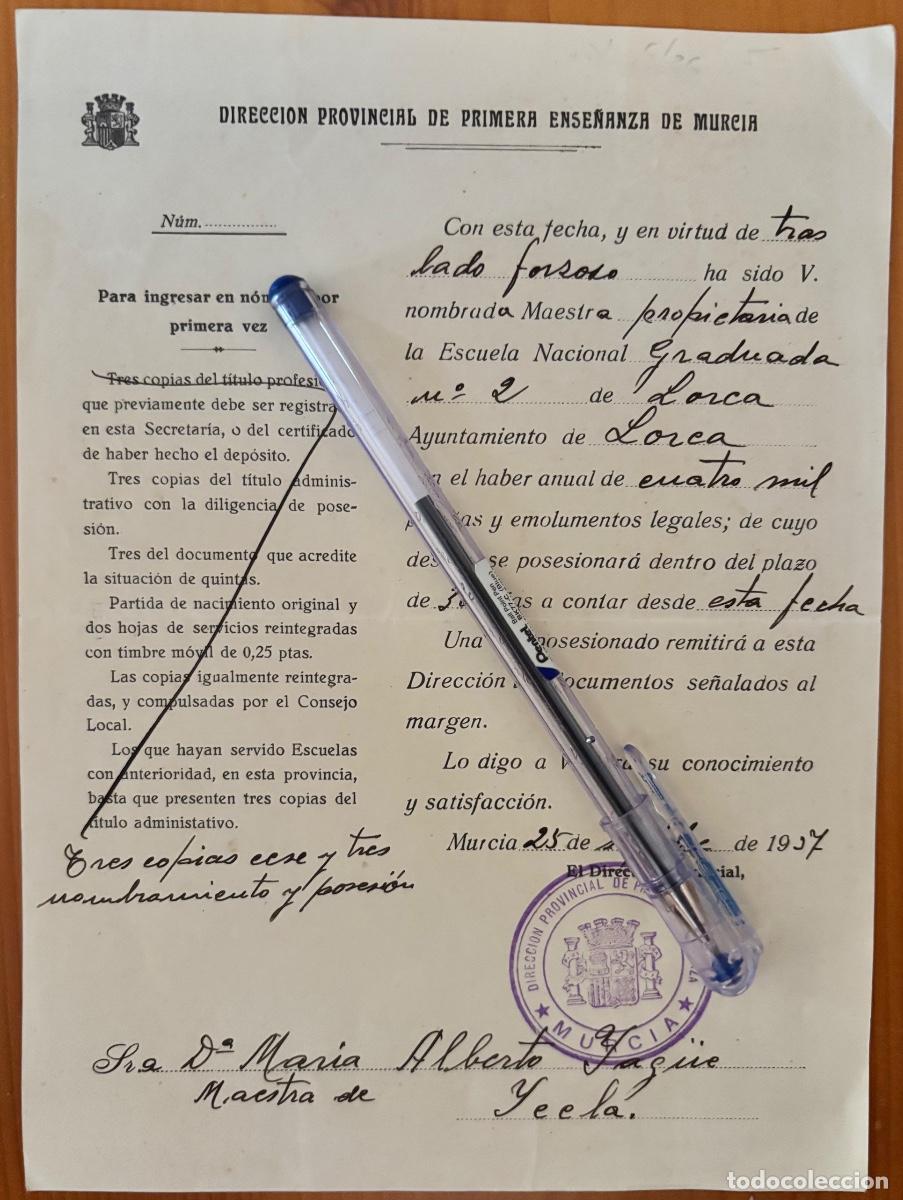 DIRECCION PROVINCIAL DE PRIMERA ENSEÑANZA DE MURCIA
Núm.
Para ingresar en por
primera vez
Tres copias del título
que previamente debe ser
en esta Secretaría, o del certificado
de haber hecho el depósito.
Tres copias del título adminis-
trativo con la diligencia de pose-
sión.
Tres del documento que acredite
la situación de quintas.
Partida de nacimiento original y
dos hojas de servicios reintegradas
con timbre móvil de 0,25 ptas.
Las copias igualmente reintegra-
das, y compulsadas por el Consejo
Local.
Los que hayan servido Escuelas
con anterioridad, en esta provincia,
basta que presenten tres copias del
título administativo.
Tres copias cese y tres
nombramiento y posesión
Con esta fecha, y en virtud de tras
lado forzoso ha sido V.
nombrada Maestra propietaria de
la Escuela Nacional Graduada
nº 2 de Lorca
Ayuntamiento de Lorca
el haber anual de cuatro mil
y emolumentos legales; de cuyo
se posesionará dentro del plazo
de a contar desde esta fecha
Una posesionado remitirá a esta
Dirección documentos señalados al
margen.
Lo digo a su conocimiento
y satisfacción.
Murcia 25 de de 1937
El
DIRECCION PROVINCIAL DE
MURCIA
Sra Dª Maria Alberto Yagüe
Maestra de Yecla.
Pentel
Ball Point Pen
todocoleccion